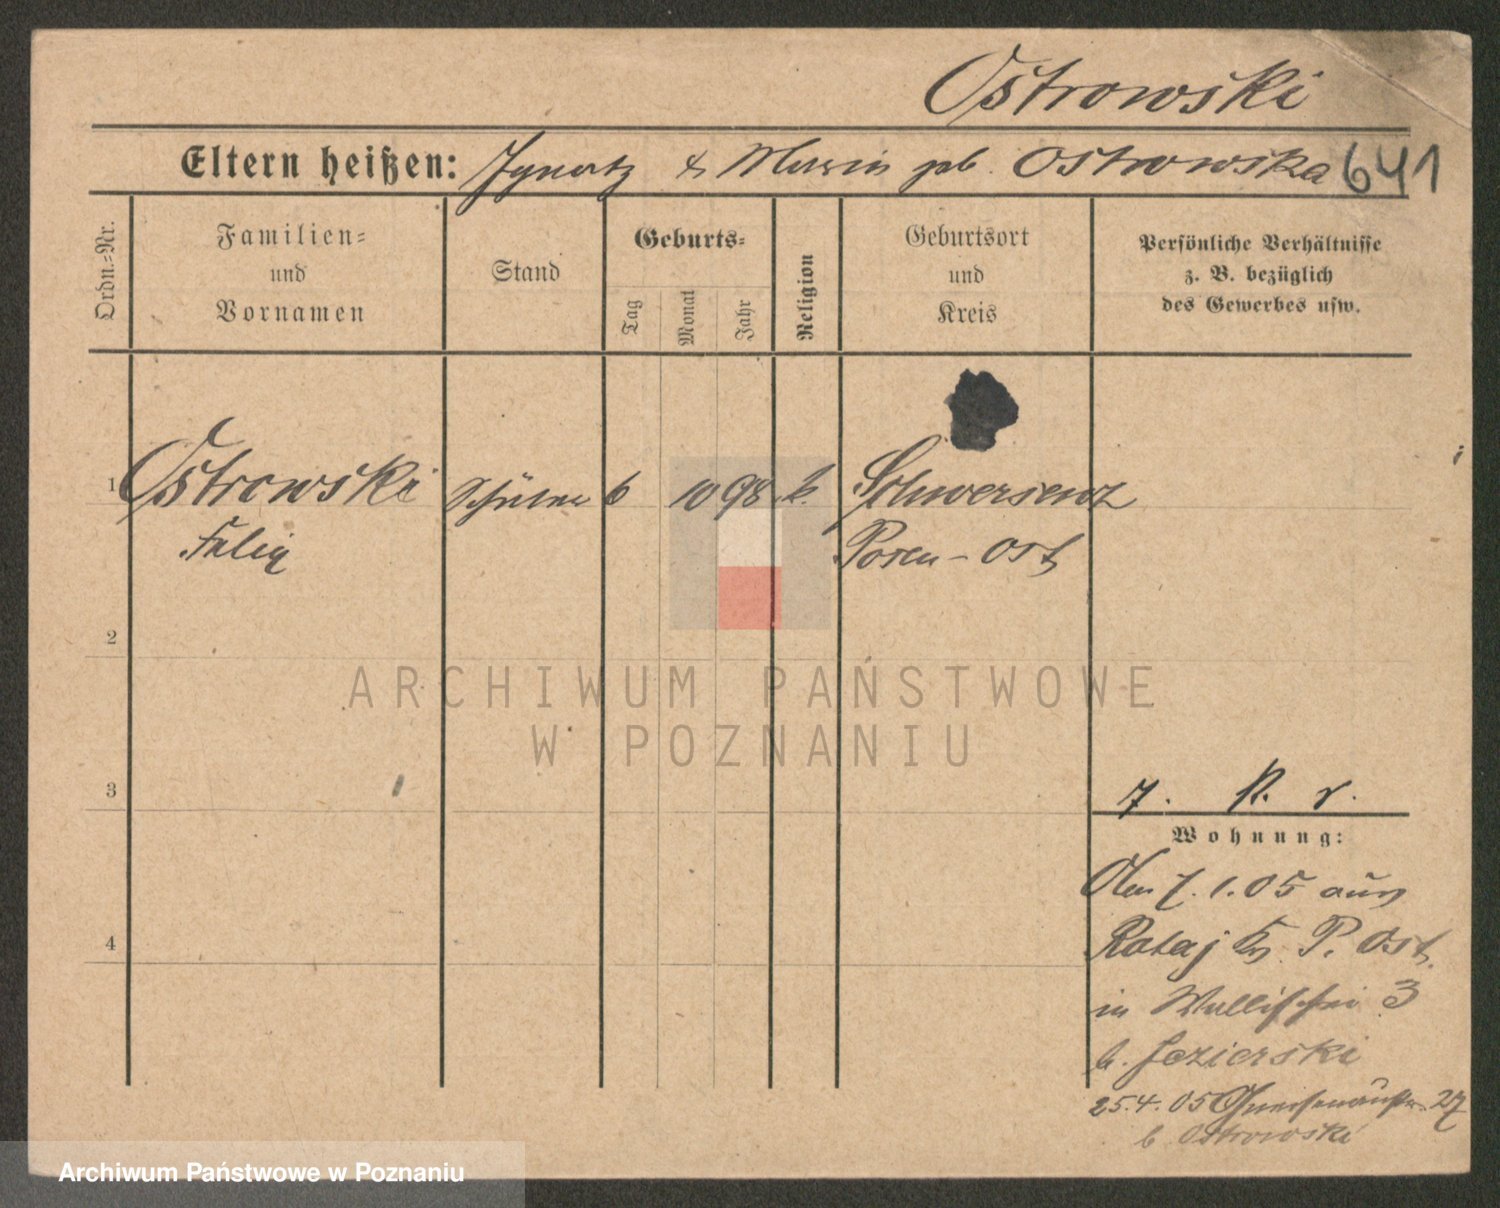 Ostrowski
Eltern heißen: Ignatz & Maria geb. Ostrowska 641
Ordn.-Nr.
Familien-
und
Vornamen
Stand
Geburts-
Tag
Monat
Jahr
Religion
Geburtsort
und
Kreis
Persönliche Verhältnisse
z. B. bezüglich
des Gewerbes usw.
1 Ostrowski Schüler 6 10 98 k. Schwersenz
Felix Posen-Ost
2
ARCHIWUM PAŃSTWOWE
W POZNANIU
3
7. r.
Wohnung:
7.1.05 aus
Rataj P. Ost.
in Wallischei 3
b. Jezierski
25.4.05 Gneisenaustr. 27
b Ostrowski
4
Archiwum Państwowe w Poznaniu